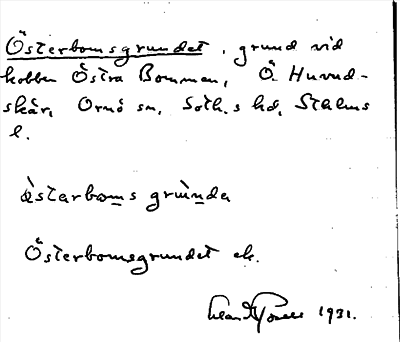 Österbomsgrundet, grund vid
kobben Östra Bomman, Ö. Huvud-
skär, Ornö sn, Soth.s hd, Sthlms
l.
österboms grunda
Österbomsgrundet ek.
1931.